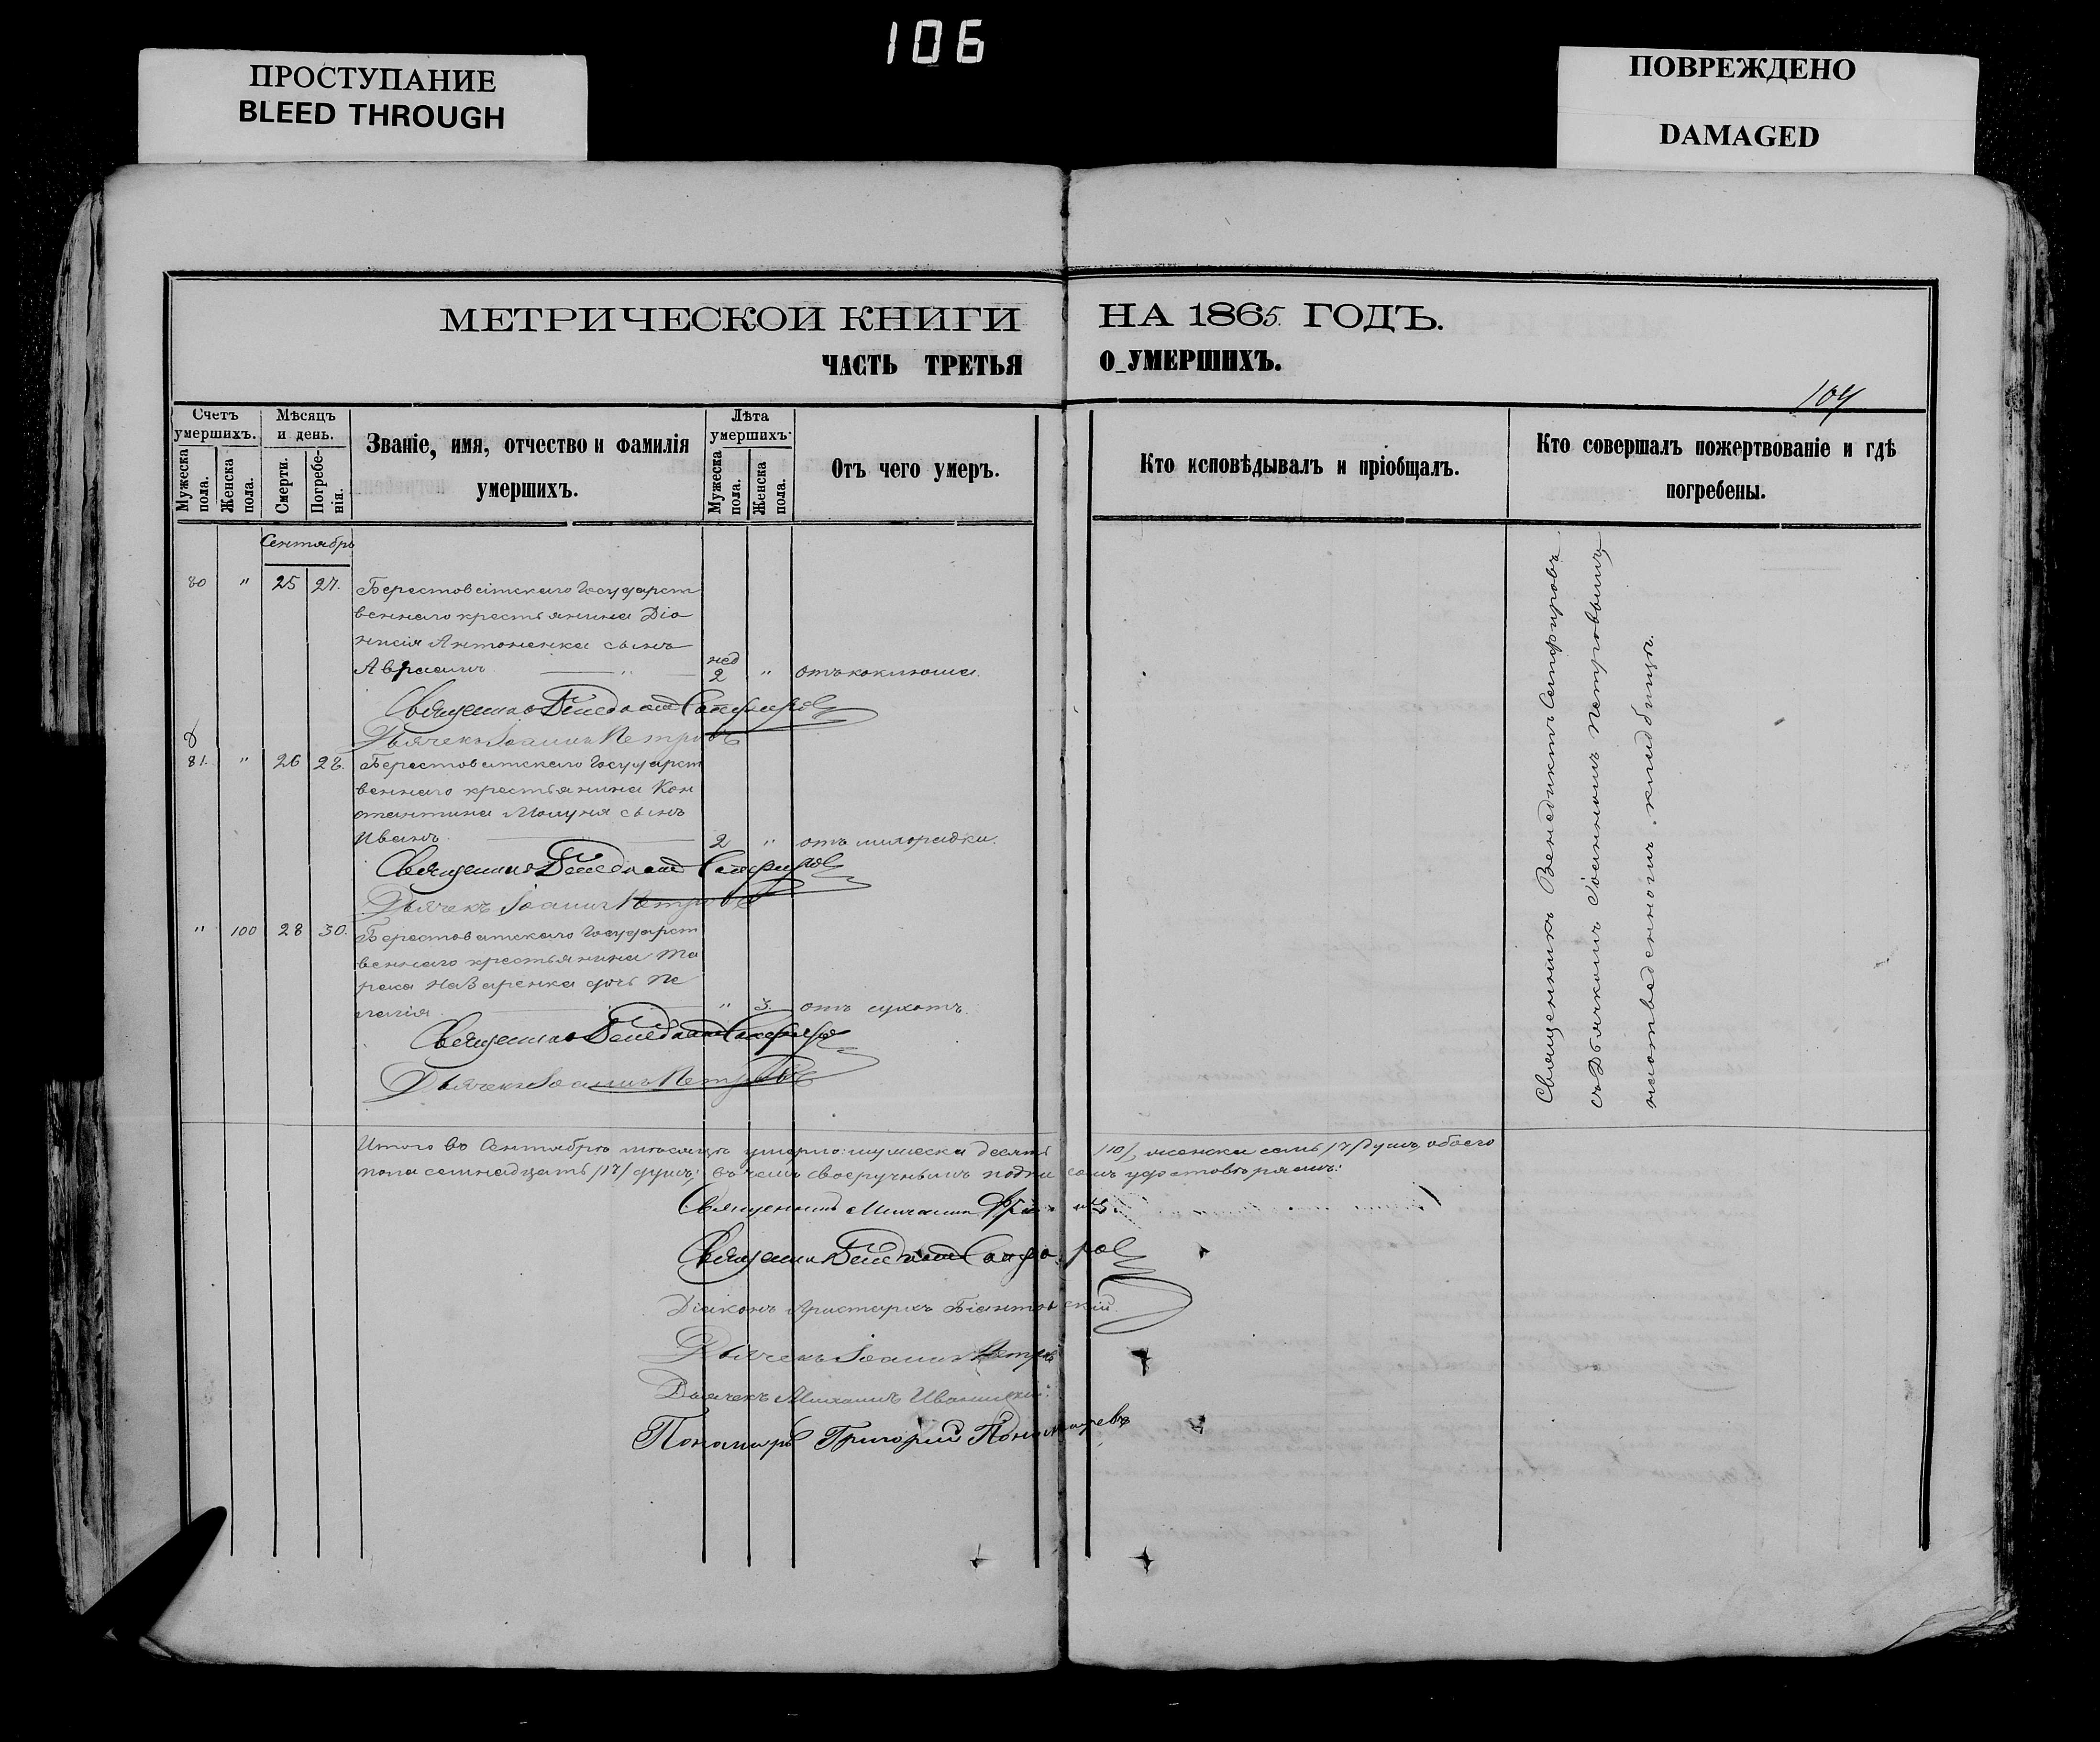 106
ПРОСТУПАНИЕ
BLEED THROUGH
ПОВРЕЖДЕНО
DAMAGED
МЕТРИЧЕСКОИ КНИГИ НА 1865 ГОДЪ.
ЧАСТЬ ТРЕТЬЯ О УМЕРШИХЪ.
104
Счетъ умершихъ.
Мужеска пола.
Женска пола.
Мѣсяцъ и день.
Смерти.
Погребенія.
Званіе, имя, отчество и фамилія
умершихъ.
Лѣта умершихъ.
Мужеска пола.
Женска пола.
Отъ чего умеръ.
Кто исповѣдывалъ и пріобщалъ.
Кто совершалъ пожертвованіе и гдѣ
погребены.
Сентябрь
80 " 25 27. Берестовѣтскаго Государст
веннаго крестьянина Діо
нисія Антоненка сынъ
Авраамъ нед 2 " отъ коклюша.
Священникъ Венедиктъ Сапфировъ
Дьячекъ Іоаннъ Петровъ
81. " 26 28. Берестоветскаго Государст
веннаго крестьянина Кон
стантина сынъ
Иванъ 2 " отъ лихорадки.
Священникъ Венедиктъ Сапфировъ
Дьячекъ Іоаннъ Петровъ
" 100 28 30. Берестоветскаго Государст
веннаго крестьянина Ма
рка Назаренка дочь Пе
лагія " 3 отъ сухотъ.
Священникъ Венедиктъ Сапфировъ
Дьячекъ Іоаннъ Петровъ
Священникъ Венедиктъ Сапфировъ
съ Дьячкомъ Іоанномъ Петровымъ
на отведенномъ кладбищѣ.
Итого въ Сентябрѣ мѣсяцѣ умерло: мужеска десять /10/, женска семь /7/ душъ, обоего
пола семнадцать /17/ душъ; въ чемъ своеручнымъ подписомъ удостовѣряемъ:
Священникъ Михаилъ
Священникъ Венедиктъ Сапфировъ
Діаконъ Аристархъ
Дьячекъ Іоаннъ Петровъ
Дьячекъ Михаилъ Иваницкій:
Пономарь Григорій Пономаревъ